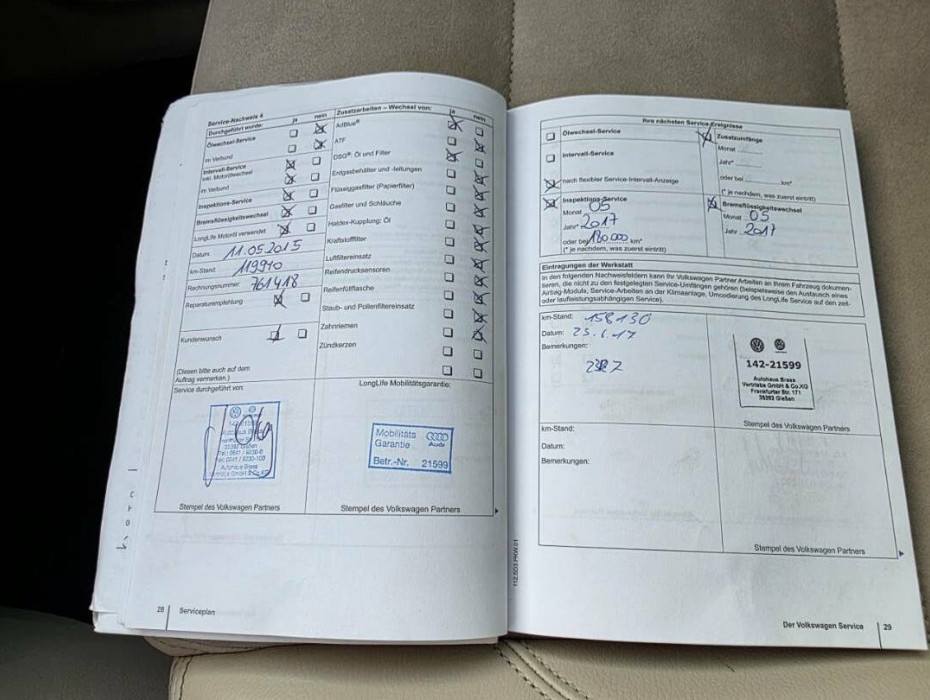 Service-Nachweis 4
Durchgeführt wurde:
ja
nein
Ölwechsel-Service
im Verbund
Intervall-Service
inkl. Motorölwechsel
im Verbund
Inspektions-Service
Bremsflüssigkeitswechsel
LongLife Motoröl verwendet
Datum: 11.05.2015
km-Stand: 119910
Rechnungsnummer: 761418
Reparaturempfehlung
Kundenwunsch
(Diesen bitte auch auf dem
Auftrag vermerken.)
Zusatzarbeiten – Wechsel von:
ja
nein
AdBlue®
ATF
DSG®: Öl und Filter
Erdgasbehälter und -leitungen
Flüssiggasfilter (Papierfilter)
Gasfilter und Schläuche
Haldex-Kupplung: Öl
Kraftstofffilter
Luftfiltereinsatz
Reifendrucksensoren
Reifenfüllflasche
Staub- und Pollenfiltereinsatz
Zahnriemen
Zündkerzen
Service durchgeführt von:
Autohaus Brass
Stempel des Volkswagen Partners
LongLife Mobilitätsgarantie:
Mobilitäts
Garantie
Audi
Betr.-Nr. 21599
Stempel des Volkswagen Partners
28
Serviceplan
Ihre nächsten Service-Ereignisse
Ölwechsel-Service
Intervall-Service
nach flexibler Service-Intervall-Anzeige
Zusatzumfänge
Monat
Jahr*
oder bei km*
(* je nachdem, was zuerst eintritt)
Inspektions-Service
Monat 05
Jahr* 2017
oder bei 180000 km*
(* je nachdem, was zuerst eintritt)
Bremsflüssigkeitswechsel
Monat 05
Jahr 2017
Eintragungen der Werkstatt
In den folgenden Nachweisfeldern kann Ihr Volkswagen Partner Arbeiten an Ihrem Fahrzeug dokumen-
tieren, die nicht zu den festgelegten Service-Umfängen gehören (beispielsweise den Austausch eines
Airbag-Moduls, Service-Arbeiten an der Klimaanlage, Umcodierung des LongLife Service auf den zeit-
oder laufleistungsabhängigen Service).
km-Stand: 158130
Datum:
Bemerkungen:
142-21599
Autohaus Brass
Vertriebs GmbH & Co.KG
Frankfurter Str. 171
35392 Gießen
Stempel des Volkswagen Partners
km-Stand:
Datum:
Bemerkungen:
Stempel des Volkswagen Partners
112.5D3.PKW.01
Der Volkswagen Service
29